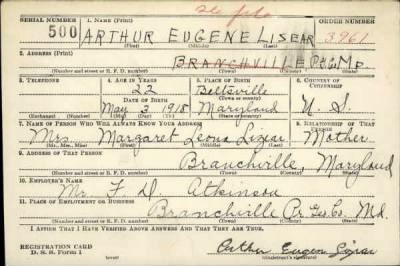 SERIAL NUMBER
1. NAME (Print)
ORDER NUMBER
500
ARTHUR EUGENE LISEAR
3961
(First) (Middle) (Last)
2. ADDRESS (Print)
BRANCHVILLE P.G. Md.
(Number and street or R. F. D. number) (Town) (County) (State)
3. TELEPHONE
4. AGE IN YEARS
5. PLACE OF BIRTH
6. COUNTRY OF CITIZENSHIP
22
Beltsville
DATE OF BIRTH
(Town or county)
May 3, 1918
Maryland
U. S.
(Exchange) (Number)
(Mo.) (Day) (Yr.)
(State or country)
7. NAME OF PERSON WHO WILL ALWAYS KNOW YOUR ADDRESS
8. RELATIONSHIP OF THAT PERSON
Mrs. Margaret Leona Lizear Mother
(Mr., Mrs., Miss) (First) (Middle) (Last)
9. ADDRESS OF THAT PERSON
Branchville, Maryland
(Number and street or R. F. D. number) (Town) (County) (State)
10. EMPLOYER'S NAME
Mr. F. D. Atkinson
11. PLACE OF EMPLOYMENT OR BUSINESS
Branchville Pr. Geo. Co. Md.
(Number and street or R. F. D. number) (Town) (County) (State)
I AFFIRM THAT I HAVE VERIFIED ABOVE ANSWERS AND THAT THEY ARE TRUE.
REGISTRATION CARD
D. S. S. Form 1
(over)
Arthur Eugene Lizear
(Registrant's signature)